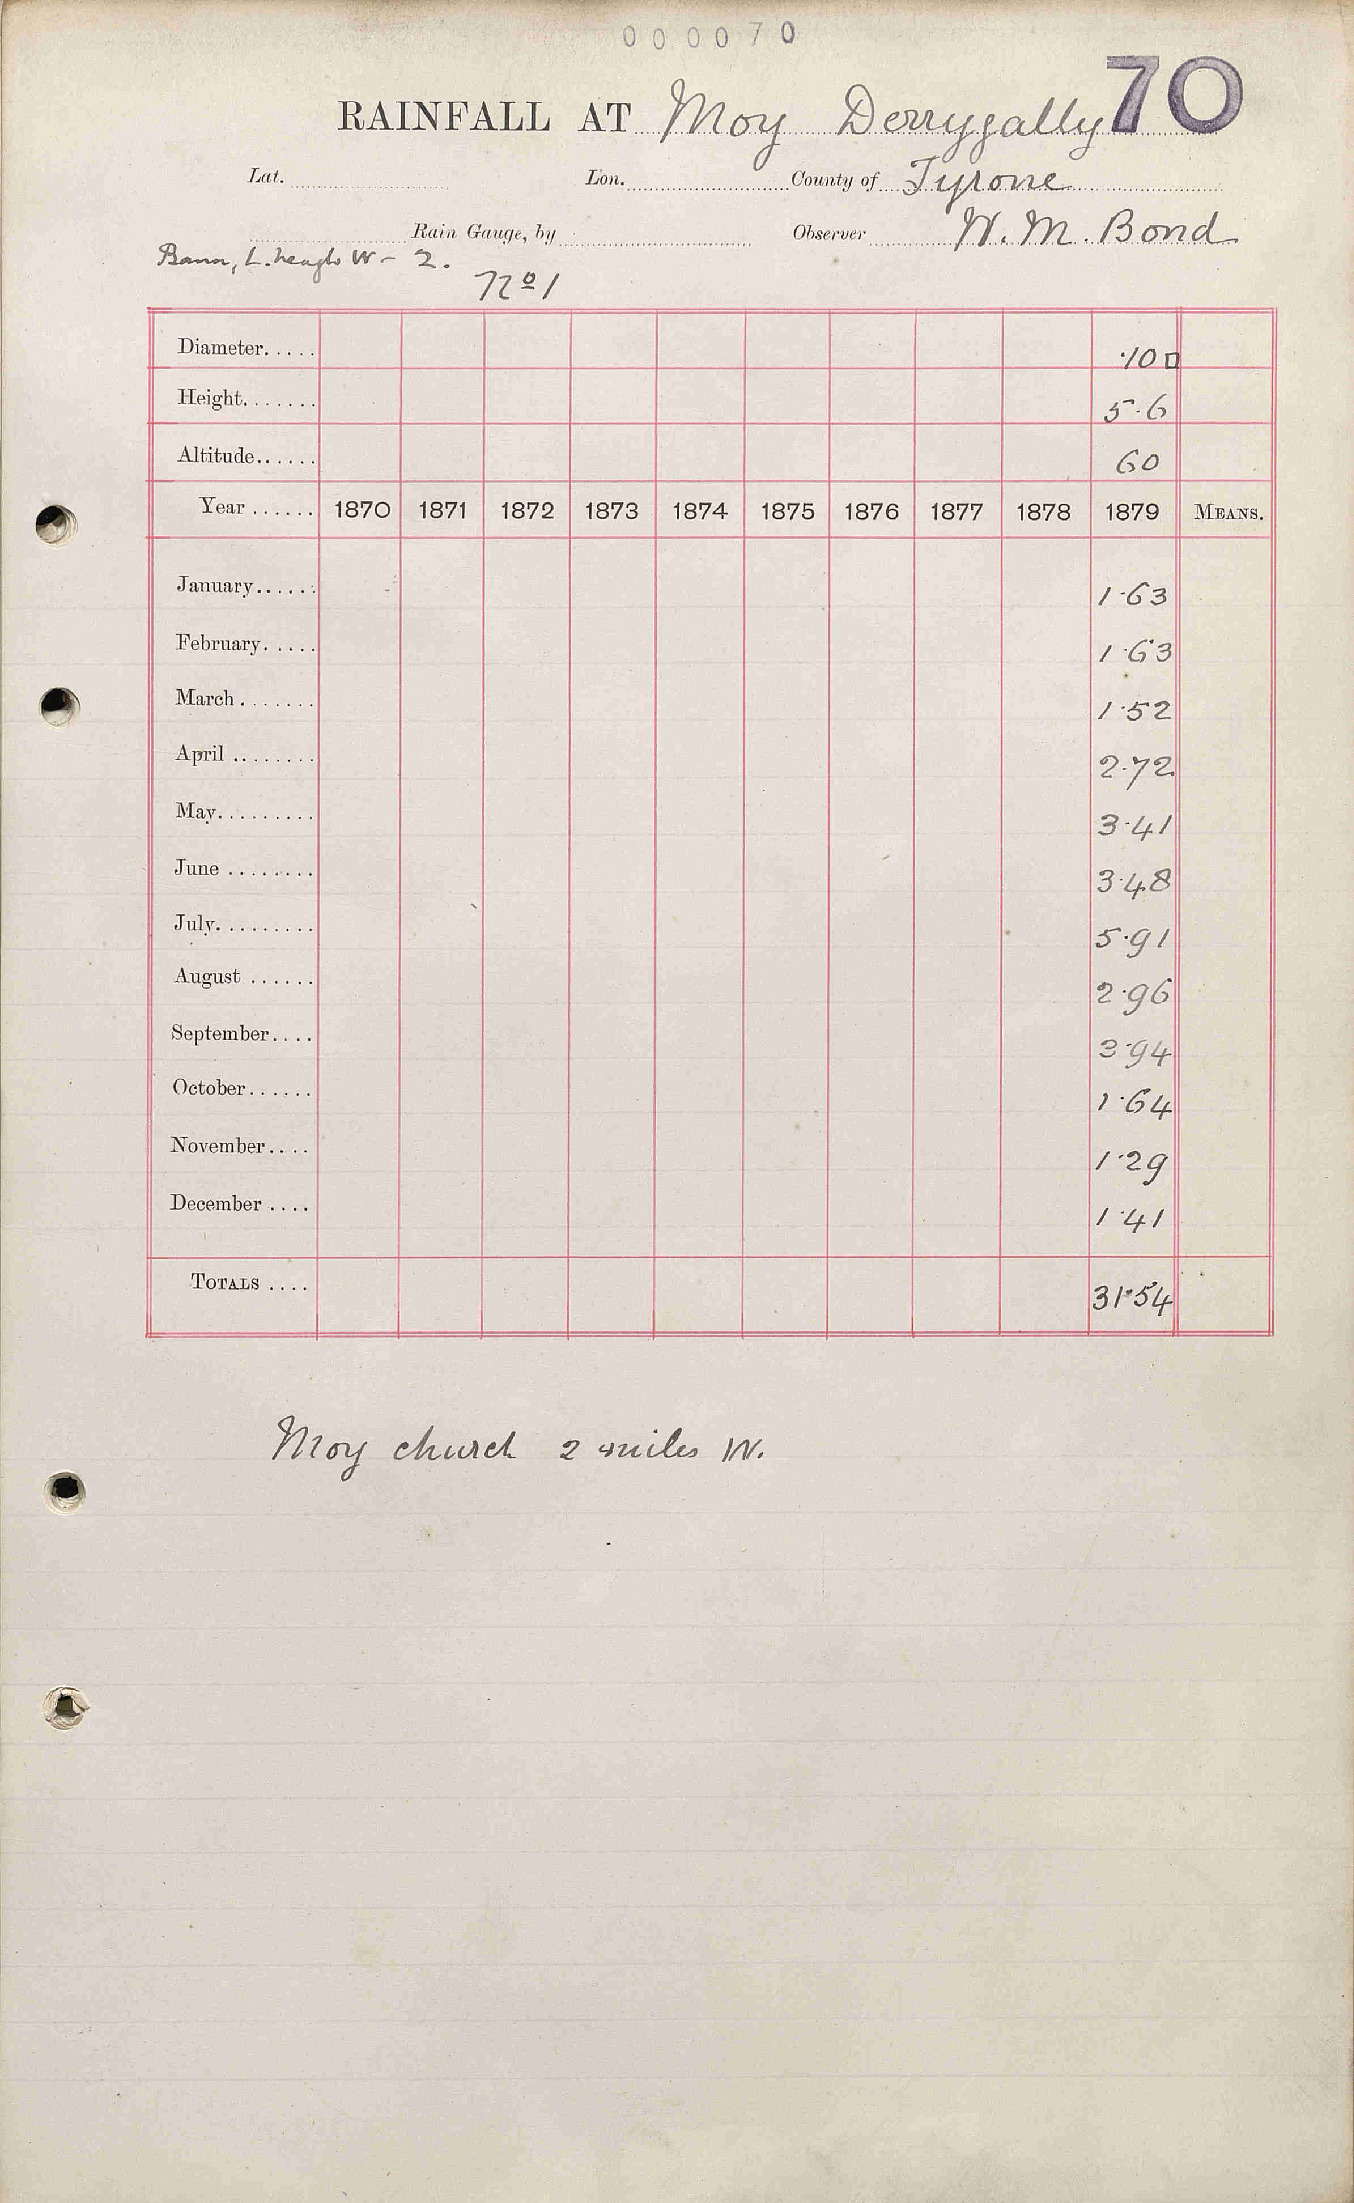 000070
70
RAINFALL AT Moy Derrygally
Lat. Lon. County of Tyrone
Rain Gauge, by Observer W. M. Bond
Bann, L. Neagh W - 2.
No 1
Diameter..... ·10 □
Height....... 5·6
Altitude...... 60
Year ...... 1870 1871 1872 1873 1874 1875 1876 1877 1878 1879 MEANS.
January...... 1·63
February..... 1·63
March ....... 1·52
April ........ 2·72
May......... 3·41
June ........ 3·48
July......... 5·91
August ...... 2·96
September.... 3·94
October...... 1·64
November.... 1·29
December .... 1·41
TOTALS .... 31·54
Moy church 2 miles W.